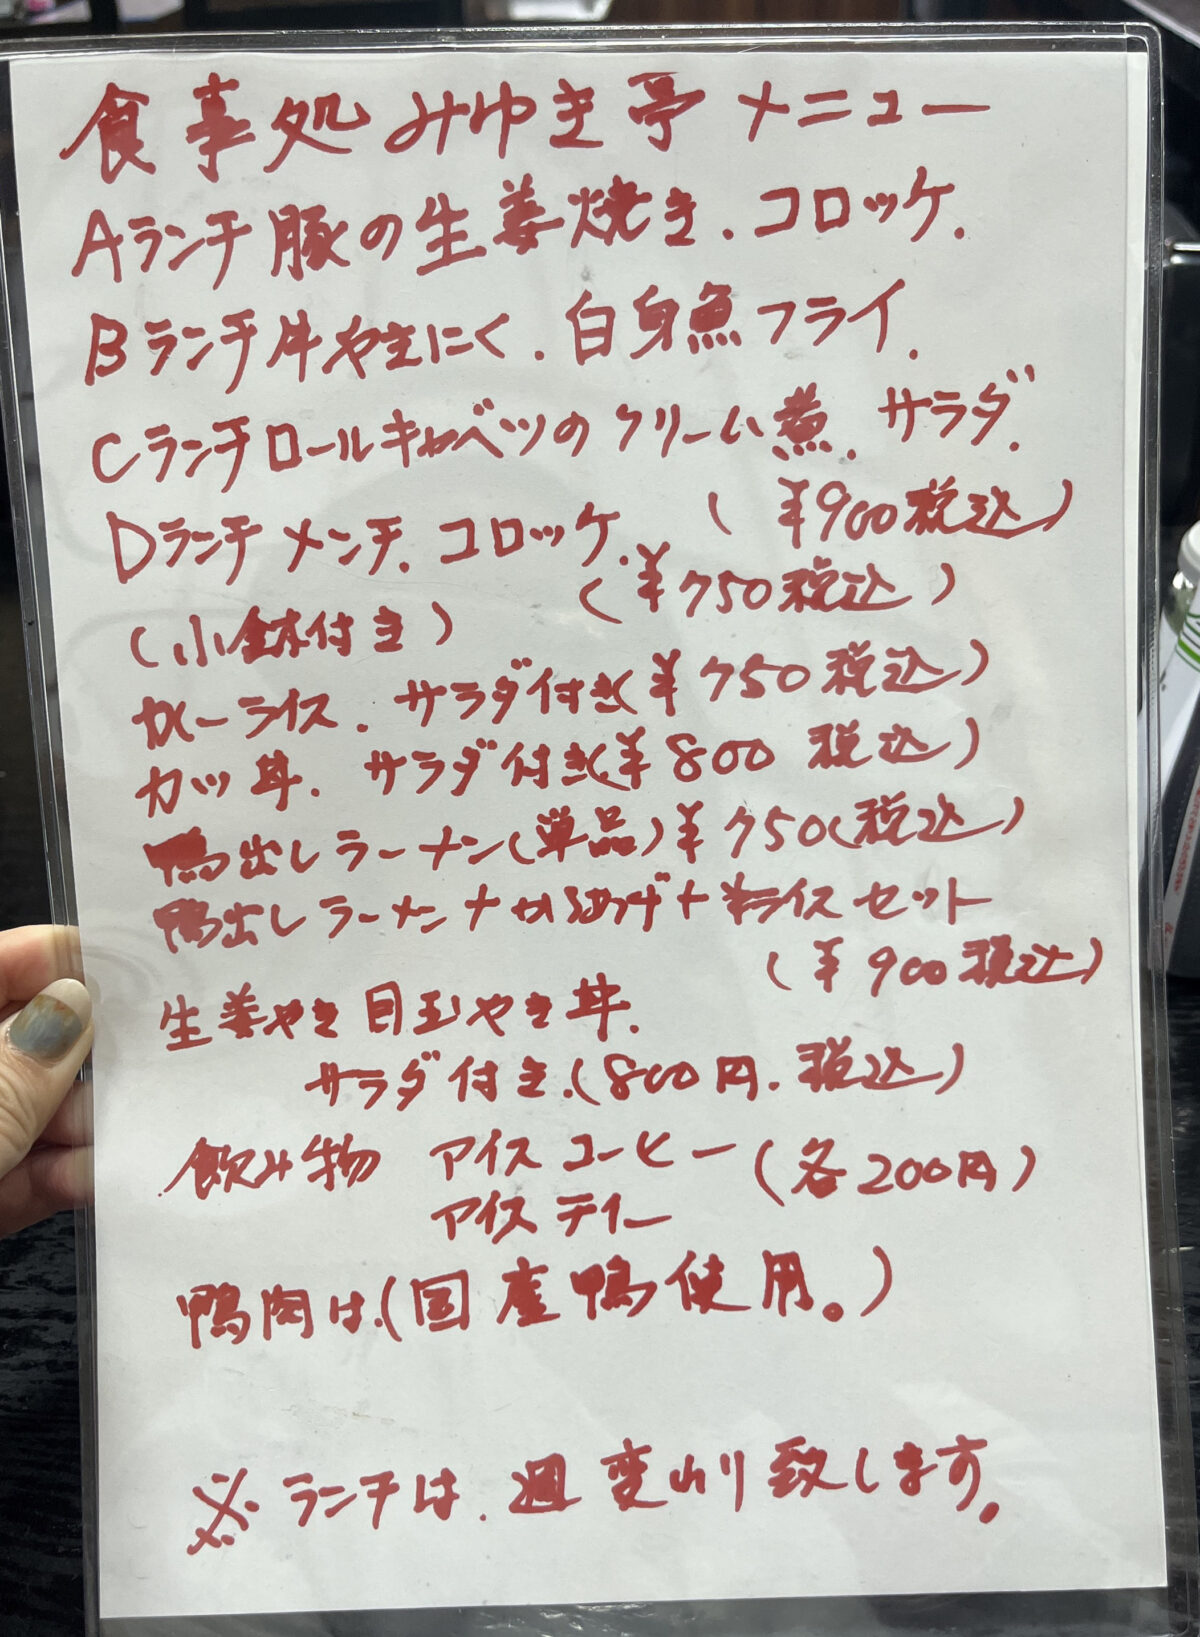 食事処 みゆき亭 メニュー
Aランチ 豚の生姜焼き.コロッケ.
Bランチ 牛やきにく.白身魚フライ.
Cランチ ロールキャベツのクリーム煮.サラダ.
(¥900税込)
Dランチ メンチ.コロッケ.
(¥750税込)
(小鉢付き)
カレーライス.サラダ付き(¥750税込)
カツ丼.サラダ付き(¥800税込)
鴨出しラーメン(単品)¥750(税込)
鴨出しラーメン+からあげ+半ライスセット
(¥900税込)
生姜やき目玉やき丼.
サラダ付き.(800円.税込)
飲み物 アイスコーヒー(各200円)
アイスティー
鴨肉は.(国産鴨使用。)
※ランチは.週変わり致します。